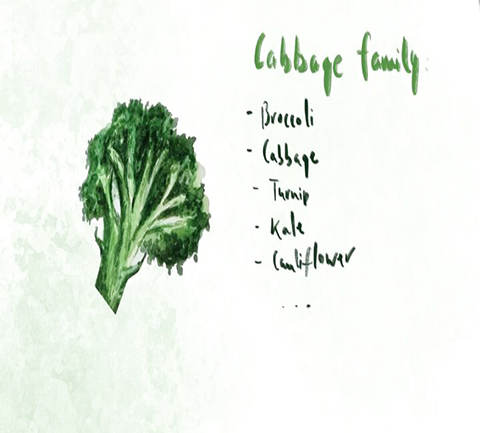 Cabbage family:
- Broccoli
- Cabbage
- Turnip
- Kale
- Cauliflower
...